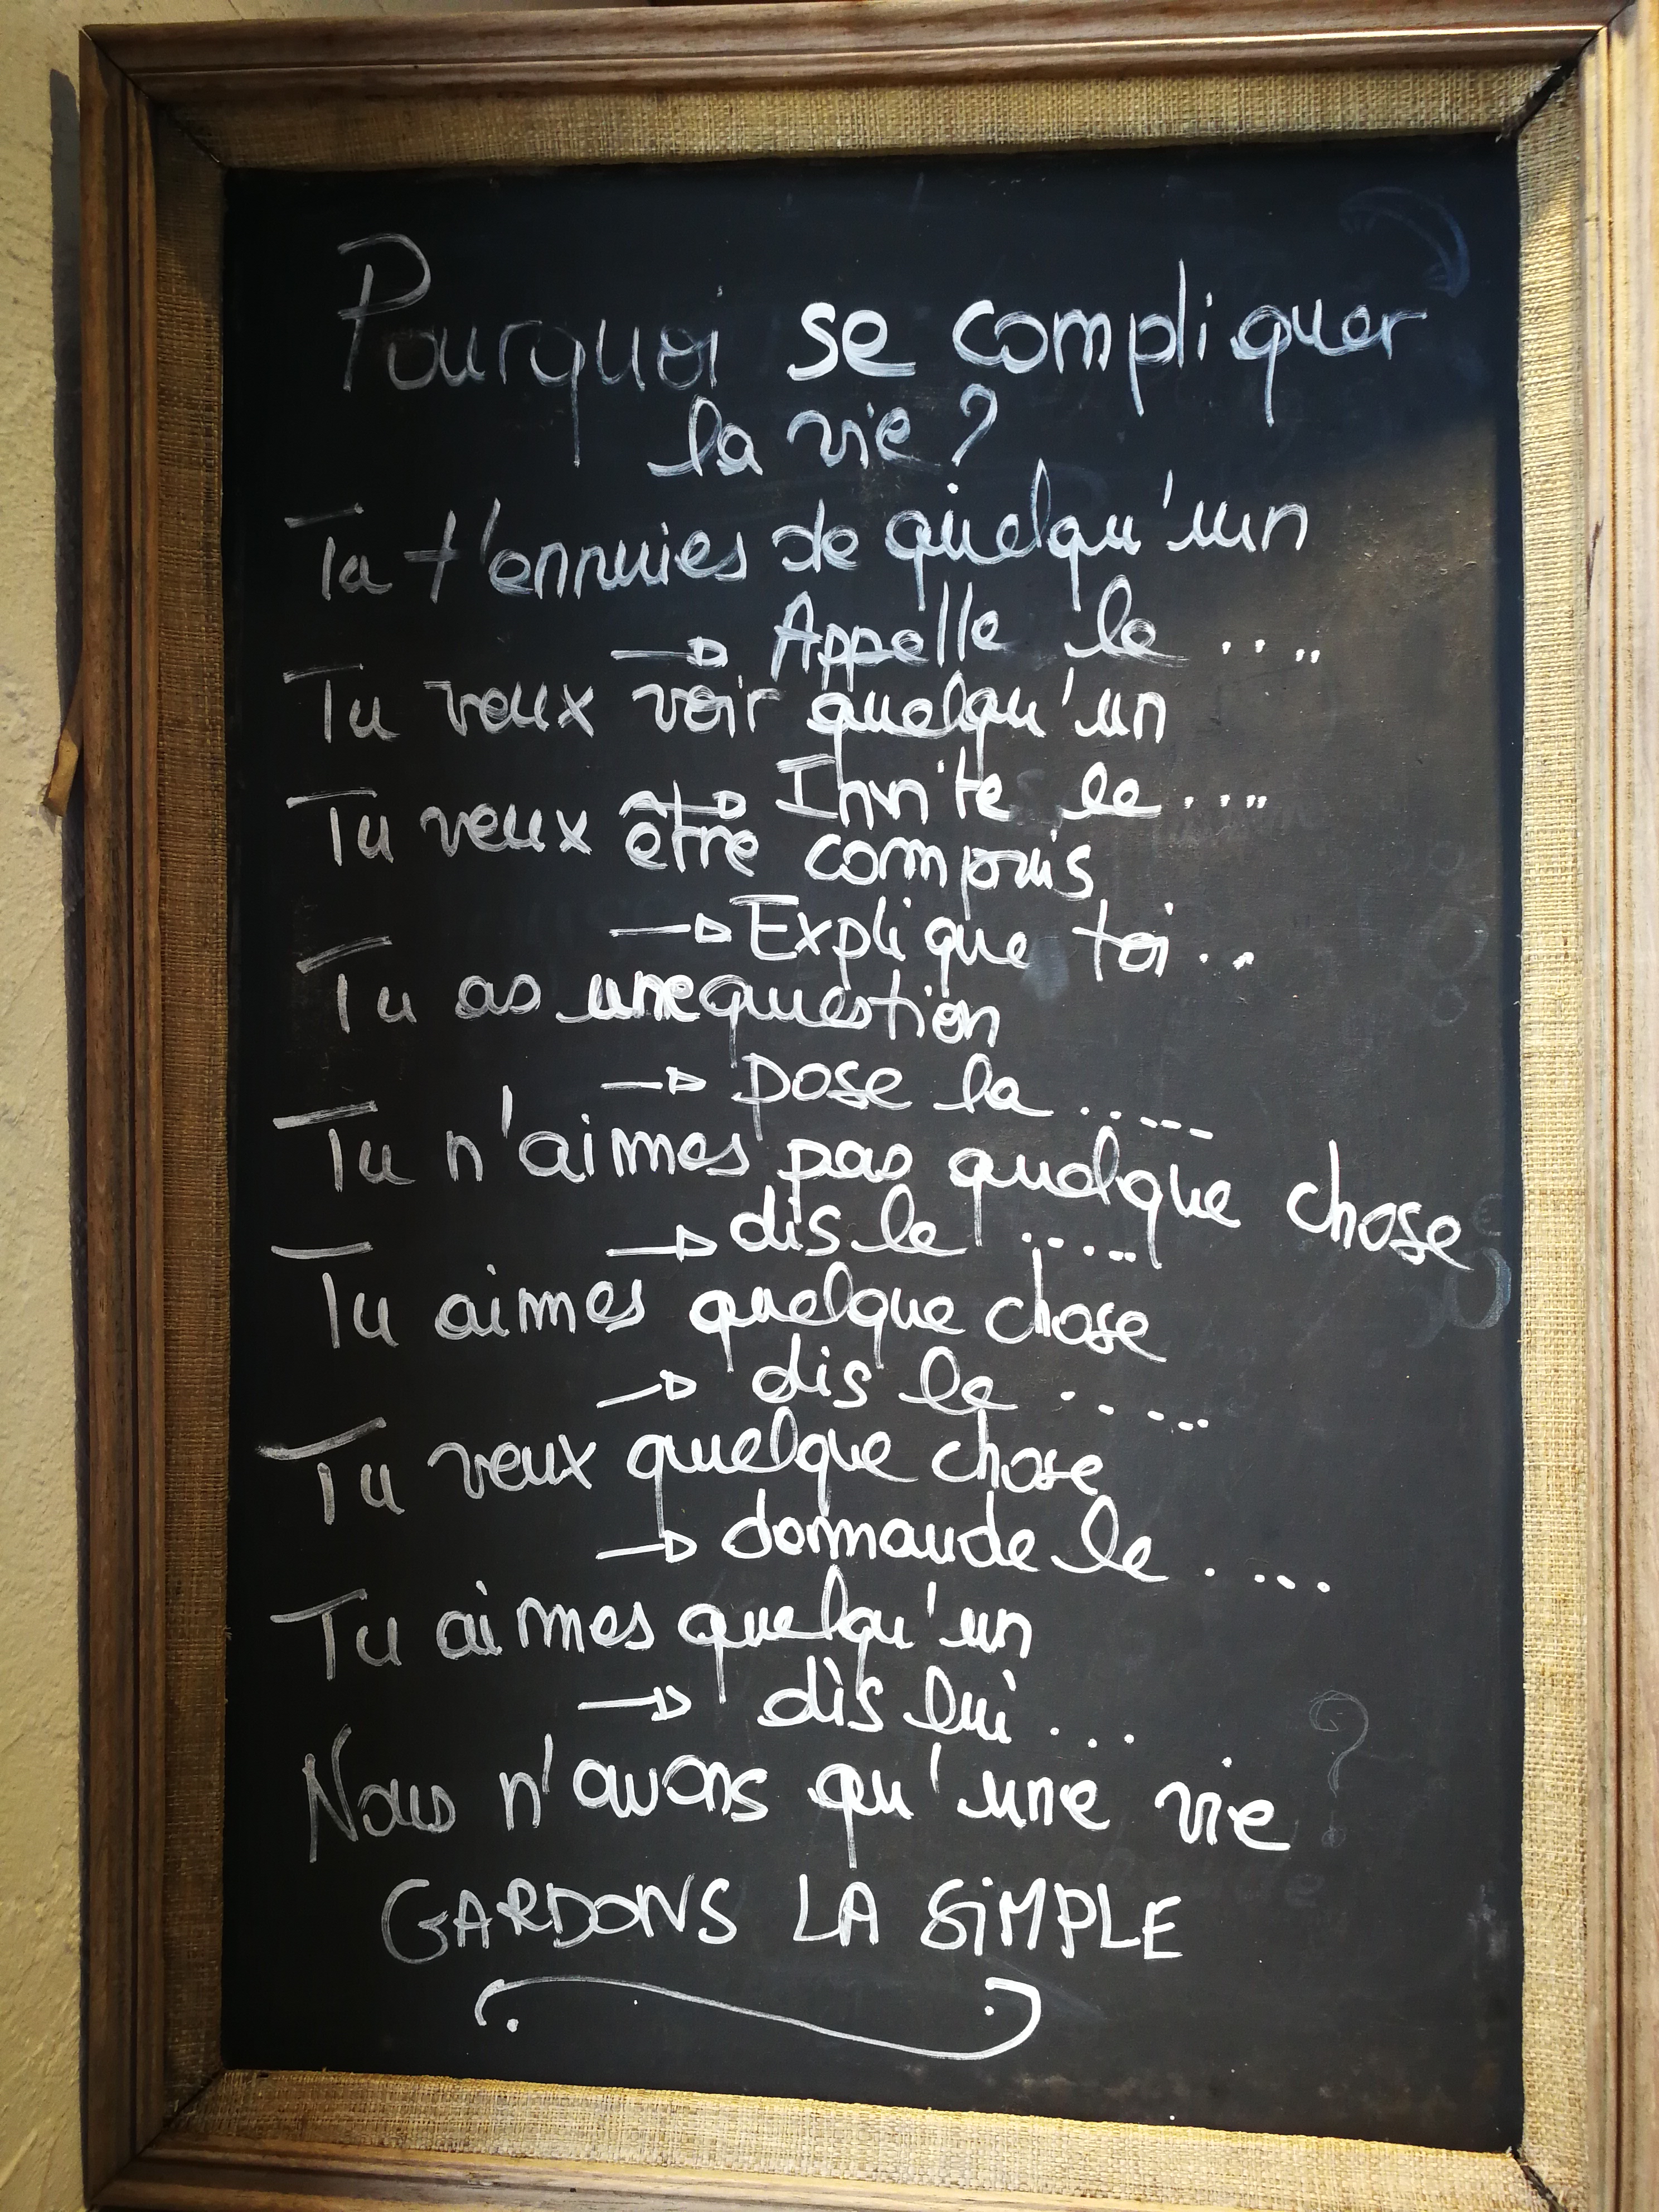 Pourquoi se compliquer
la vie ?
Tu t'ennuies de quelqu'un
→ Appelle le ....
Tu veux voir quelqu'un
→ Invite le ....
Tu veux être compris
→ Explique toi ...
Tu as une question
→ pose la .....
Tu n'aimes pas quelque chose
→ dis le .....
Tu aimes quelque chose
→ dis le .....
Tu veux quelque chose
→ demande le ....
Tu aimes quelqu'un
→ dis lui ...
Nous n'avons qu'une vie
GARDONS LA SiMPLE